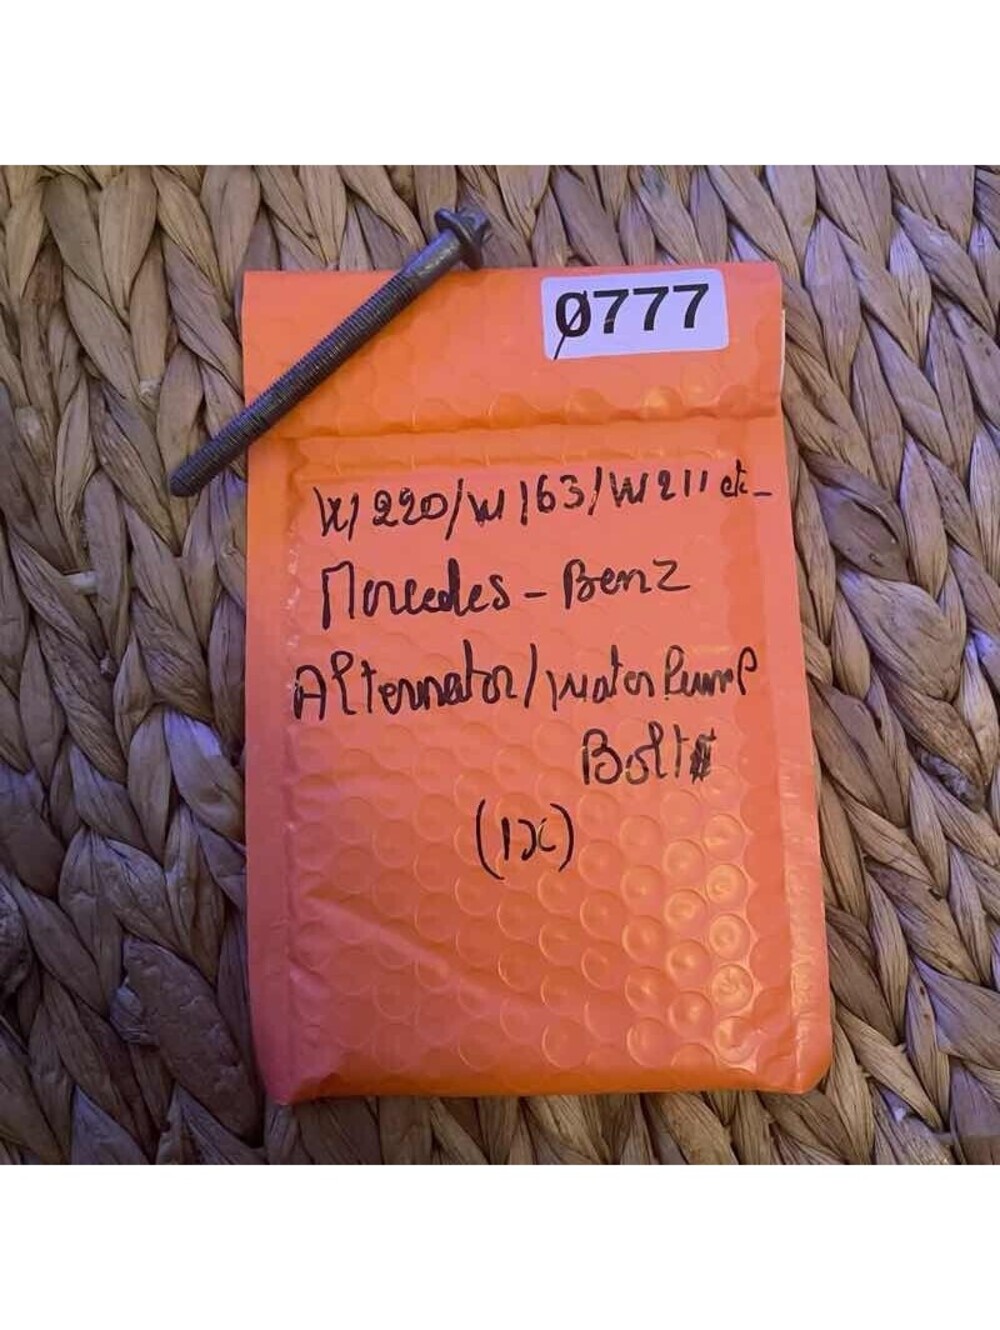 Ø777
W220/W163/W211 etc_
Mercedes-Benz
Alternator/Water Pump
Bolt
(1x)